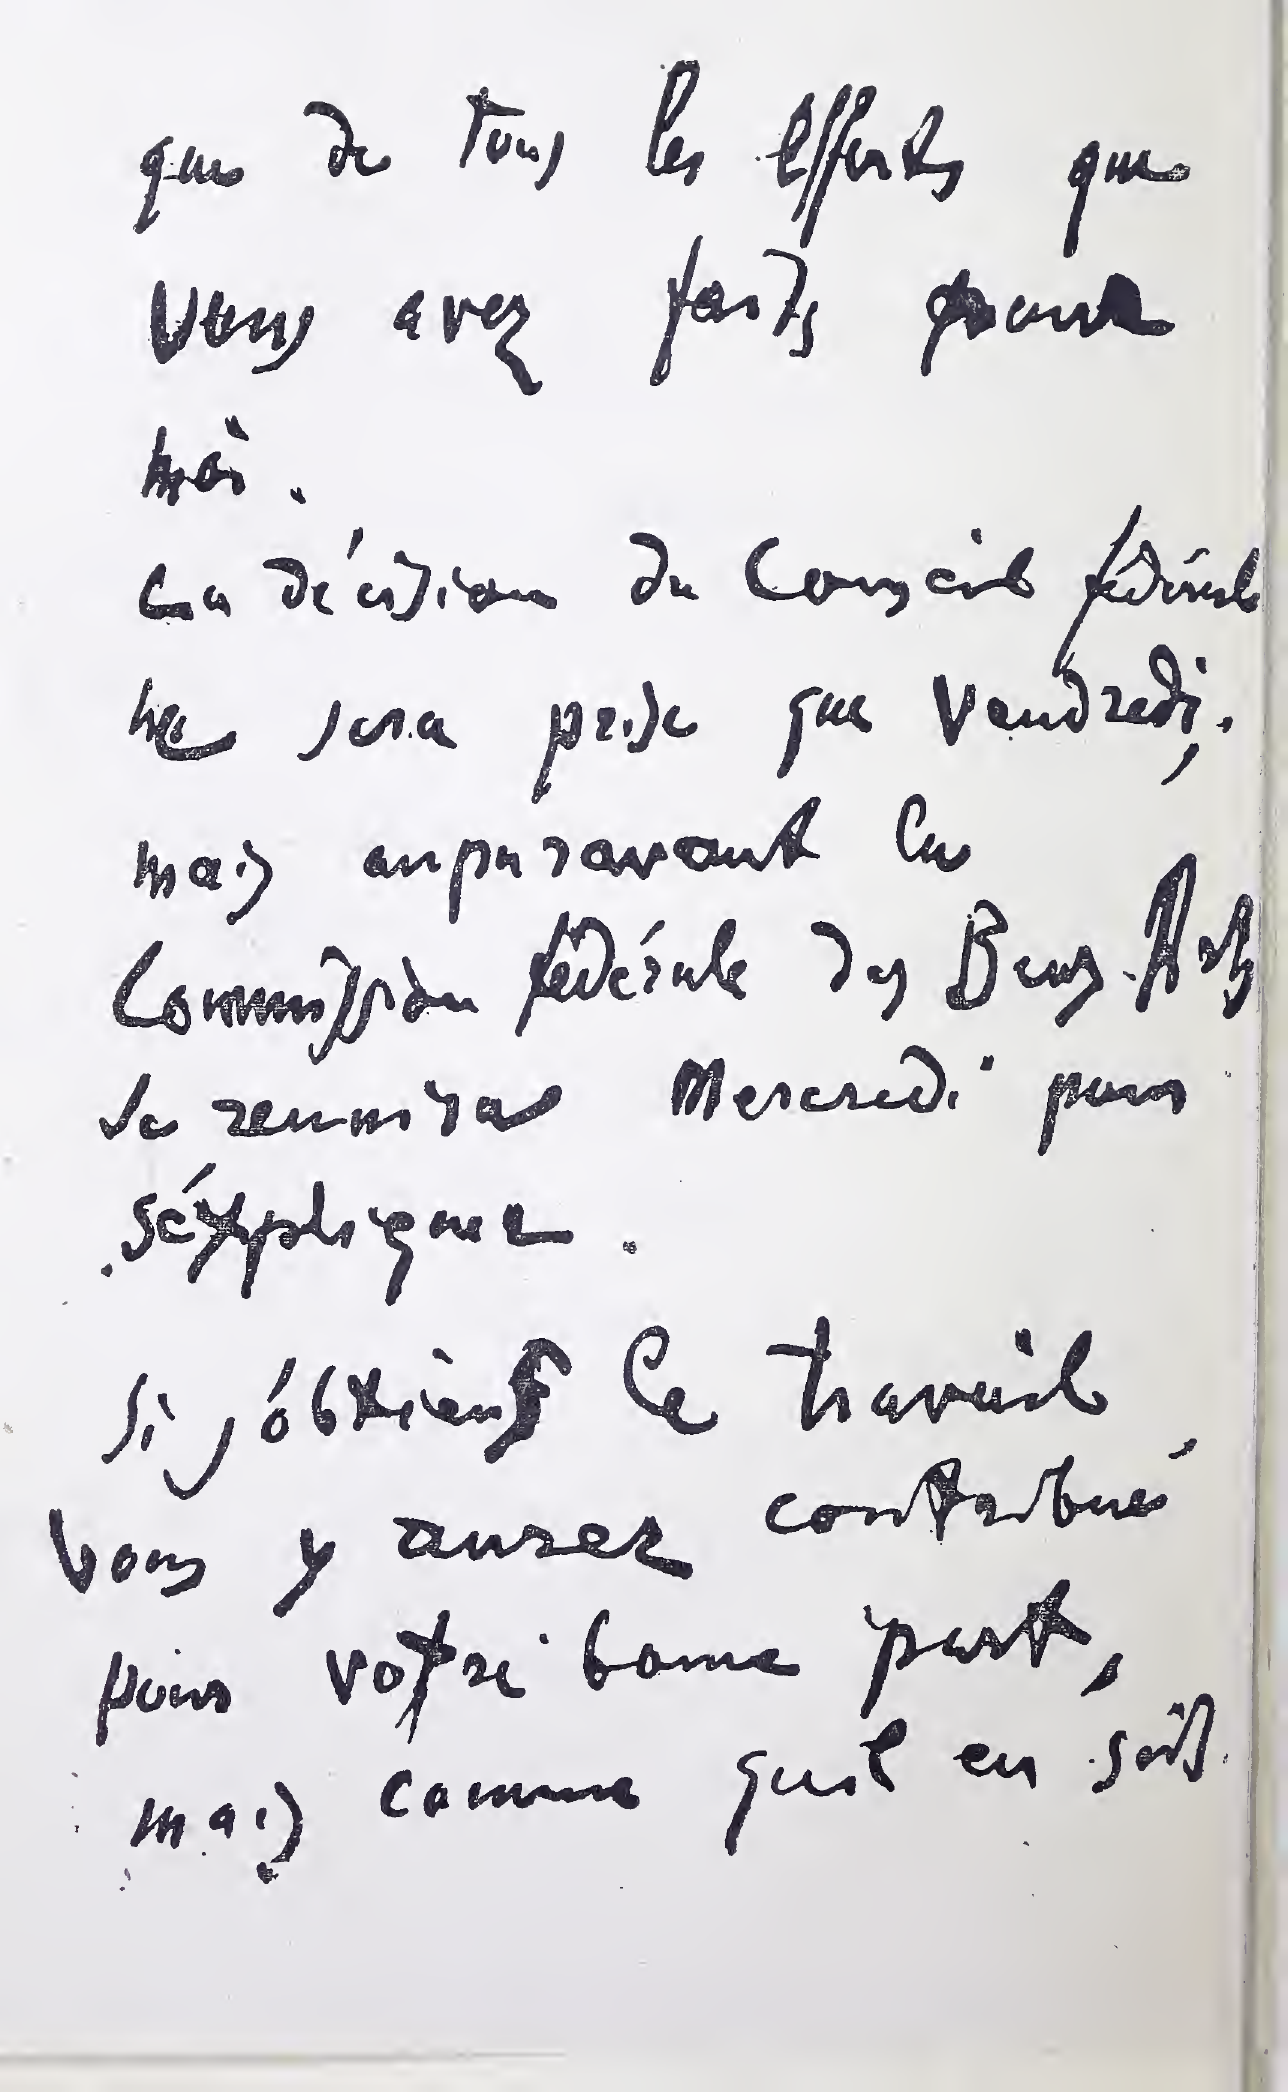 que de tous les efforts que
vous avez faits pour
moi.
La décision du Conseil fédéral
ne sera prise que Vendredi,
mais auparavant la
Commission fédérale des Beaux-Arts
se reunira Mercredi pour
s'éxpliquer.
Si j'obtiens le travail
vous y aurez contribué
pour votre bonne part,
mais comme qu'il en soit